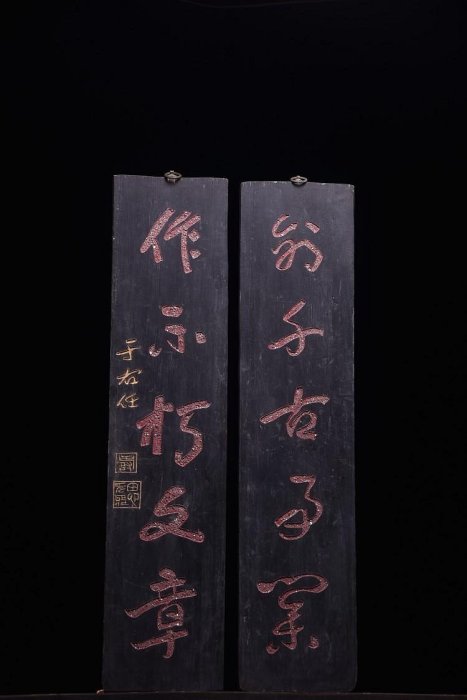 千古事業
作不朽文章
于右任